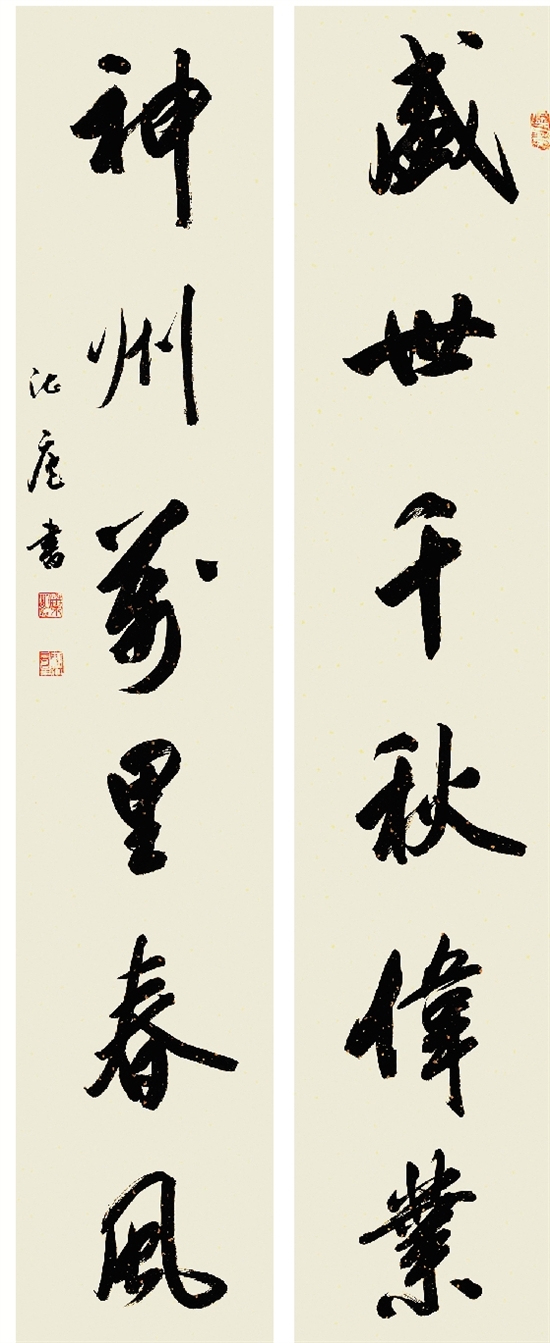 盛世千秋偉業
神州萬里春風
書